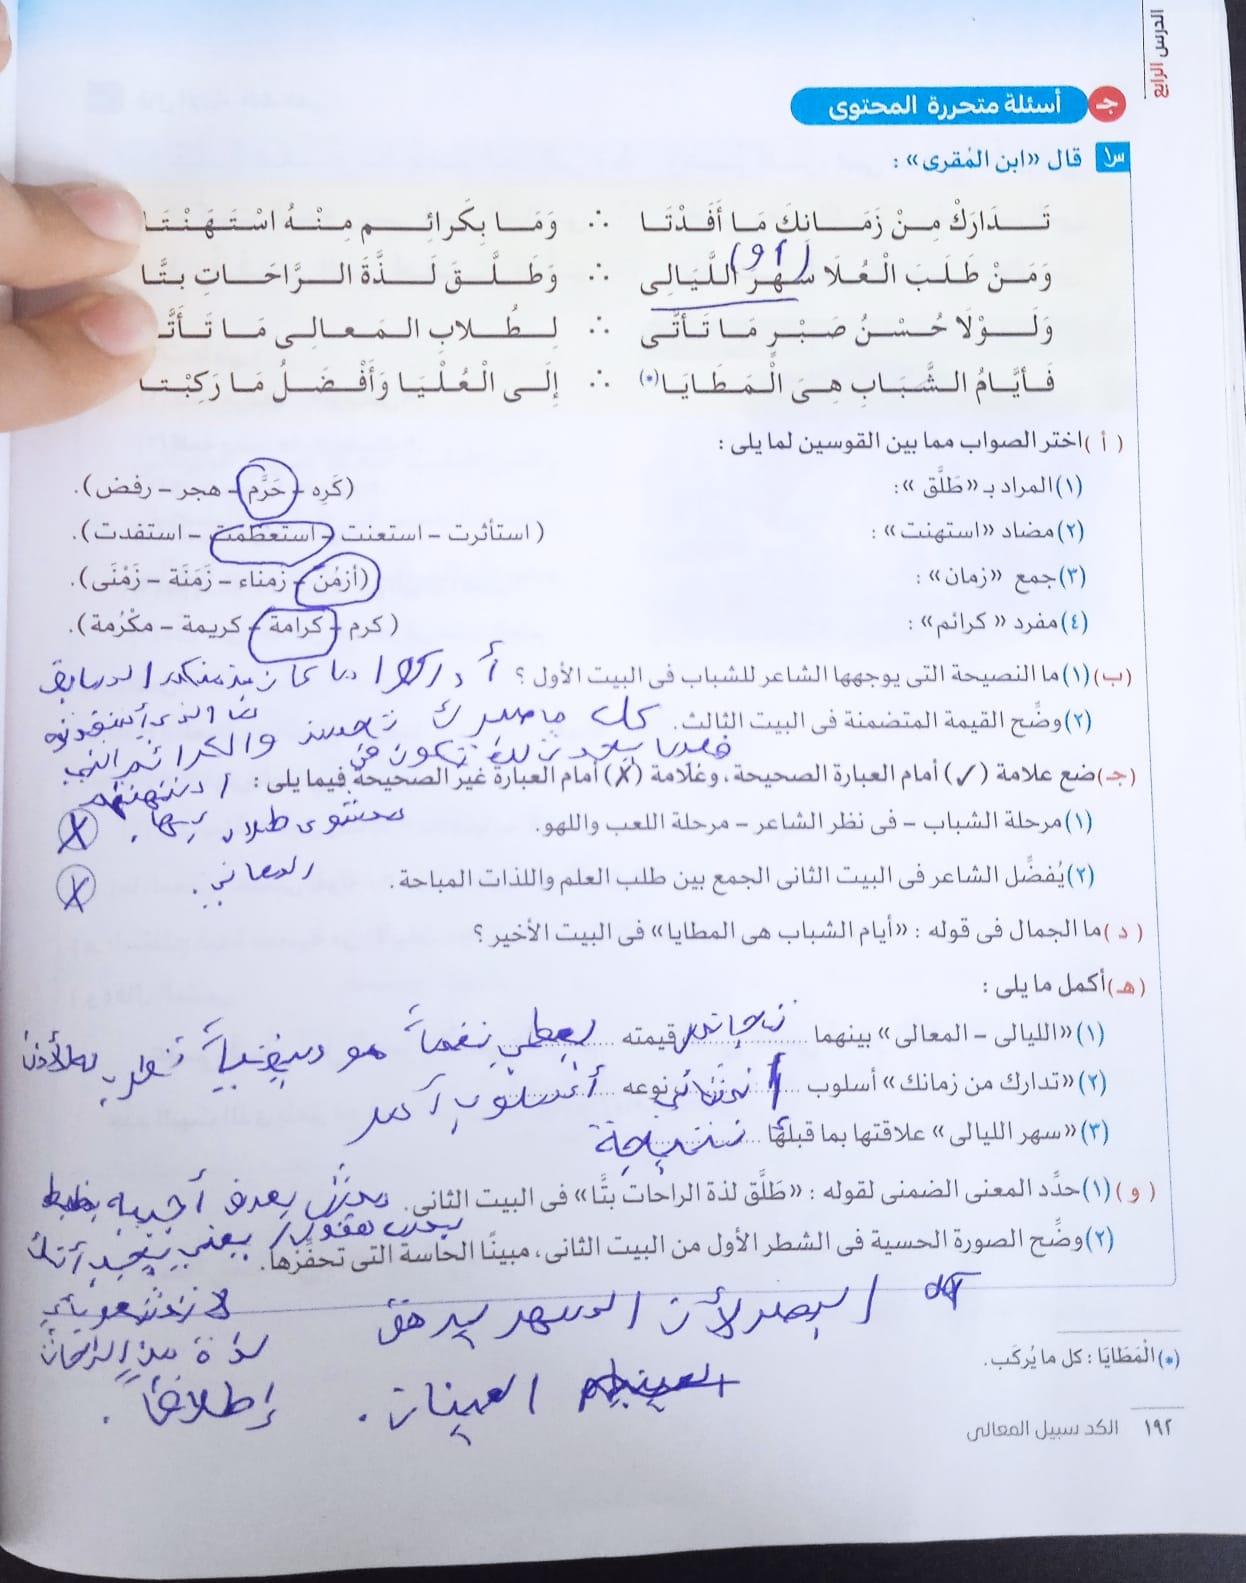 الدرس الرابع
ج أسئلة متحررة المحتوى
س١ قال «ابن المُقرى» :
تَـدَارَكْ مِـنْ زَمَـانِكَ مَـا أَفَـدْتَـا ∴ وَمَـا بِـكَرائِـمِ مِـنْـهُ اسْـتَـهَـنْـتَـا
وَمَـنْ طَـلَـبَ الْـعُـلَا سَهَرَ اللَّيَالِى ∴ وَطَـلَّـقَ لَـذَّةَ الـرَّاحَـاتِ بـتَّـا
(أو)
وَلَـوْلَا حُـسْـنُ صَـبْـرٍ مَـا تَـأتَّـى ∴ لِـطُـلابِ الـمَـعـالِـى مَـا تَـأَتَّـ
فَـأيَّـامُ الـشَّـبَـابِ هِـىَ الْـمَـطَـايَـا(*) ∴ إِلَـى الْـعُـلْـيَـا وَأَفْـضَـلُ مَـا رَكِـبْـتـا
(أ) اختر الصواب مما بين القوسين لما يلى :
(١) المراد بـ «طَلَّق» : (كَرِه – حَرَّم – هجر – رفض).
(٢) مضاد «استهنت» : (استأثرت – استعنت – استعظمت – استفدت).
(٣) جمع «زمان» : (أزمُن – زمناء – زَمَنَة – زَمْنَى).
(٤) مفرد «كرائم» : (كرم – كرامة – كريمة – مكْرُمة).
(ب) (١) ما النصيحة التى يوجهها الشاعر للشباب فى البيت الأول ؟
(٢) وضِّح القيمة المتضمنة فى البيت الثالث. كل ما صبرك تحسن
والكرائم التي
(جـ) ضع علامة (✓) أمام العبارة الصحيحة، وعلامة (✗) أمام العبارة غير الصحيحة فيما يلى :
(١) مرحلة الشباب – فى نظر الشاعر – مرحلة اللعب واللهو. X
(٢) يُفضِّل الشاعر فى البيت الثانى الجمع بين طلب العلم واللذات المباحة. X
(د) ما الجمال فى قوله : «أيام الشباب هى المطايا» فى البيت الأخير ؟
(هـ) أكمل ما يلى :
(١) «الليالى – المعالى» بينهما ........ قيمته يعطي نغماً موسيقياً تطرب له الأذن
(٢) «تدارك من زمانك» أسلوب إنشائي نوعه أسلوب أمر
(٣) «سهر الليالى» علاقتها بما قبلها نتيجة
(و) (١) حدِّد المعنى الضمنى لقوله : «طَلَّق لذة الراحات بتًّا» فى البيت الثانى. مش بعرف أجيبه
(٢) وضِّح الصورة الحسية فى الشطر الأول من البيت الثانى، مبينًا الحاسة التى تحفِّزها.
البصر لأن السهر يرهق
لذة من الراحات
العينان.
إطلاقاً.
(*) الْمَطَايَا : كل ما يُركَب.
١٩٢ الكد سبيل المعالى